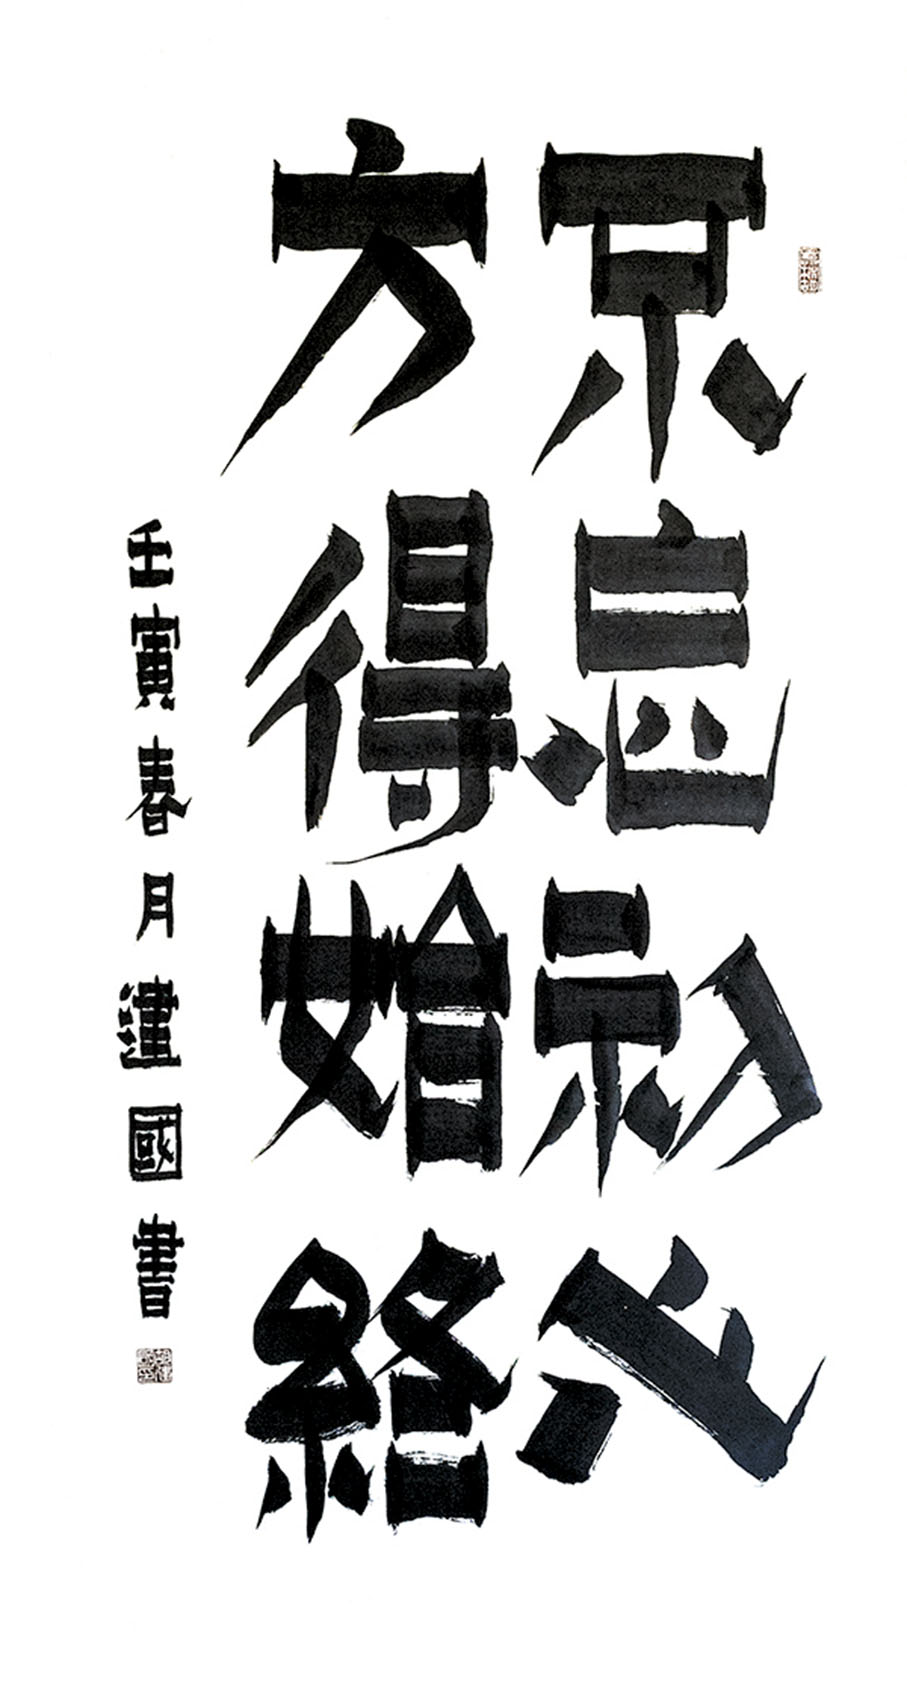 不忘初心
方得始終
壬寅春月建國書